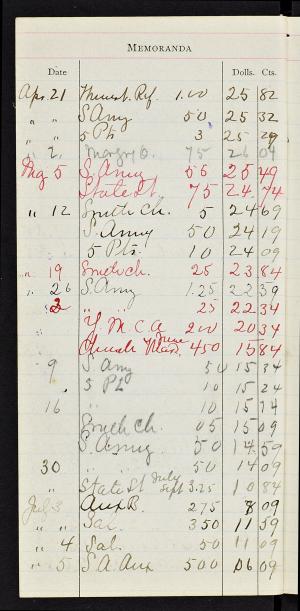 MEMORANDA
Date Dolls. Cts.
Apr. 21 Ref. 1.00 25 82
" " S Amy 50 25 32
" " 5 Pts 3 25 29
" 2 75 26 04
Aug 5 S. Army 55 25 49
State St. 75 24 74
" 12 Smith Ch. 5 24 69
S. Army 50 24 19
5 Pts. 10 24 09
" 19 Smith Ch. 25 23 84
" 26 S. Army 1.25 22 59
2 " " 25 22 34
Y. M. C. A 200 20 34
Church 450 15 84
9 S. Amy 50 15 34
5 Pt 10 15 24
16 " " 10 15 14
Smith Ch. 05 15 09
S. Army 50 14 59
30 " " 50 14 09
State St July Sept 3.25 10 84
July 3 Aux B. 275 8 09
" " Sal. 350 11 59
" 4 Sal. 50 11 09
" 5 S. A. Aux 500 06 09